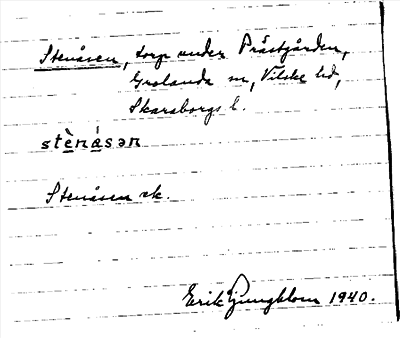 Stenåsen, torp under Prästgården,
Grolanda sn, Vilske hd,
Skaraborgs l.
stènás​ən
Stenåsen ek.
Erik Ljungblom 1940.